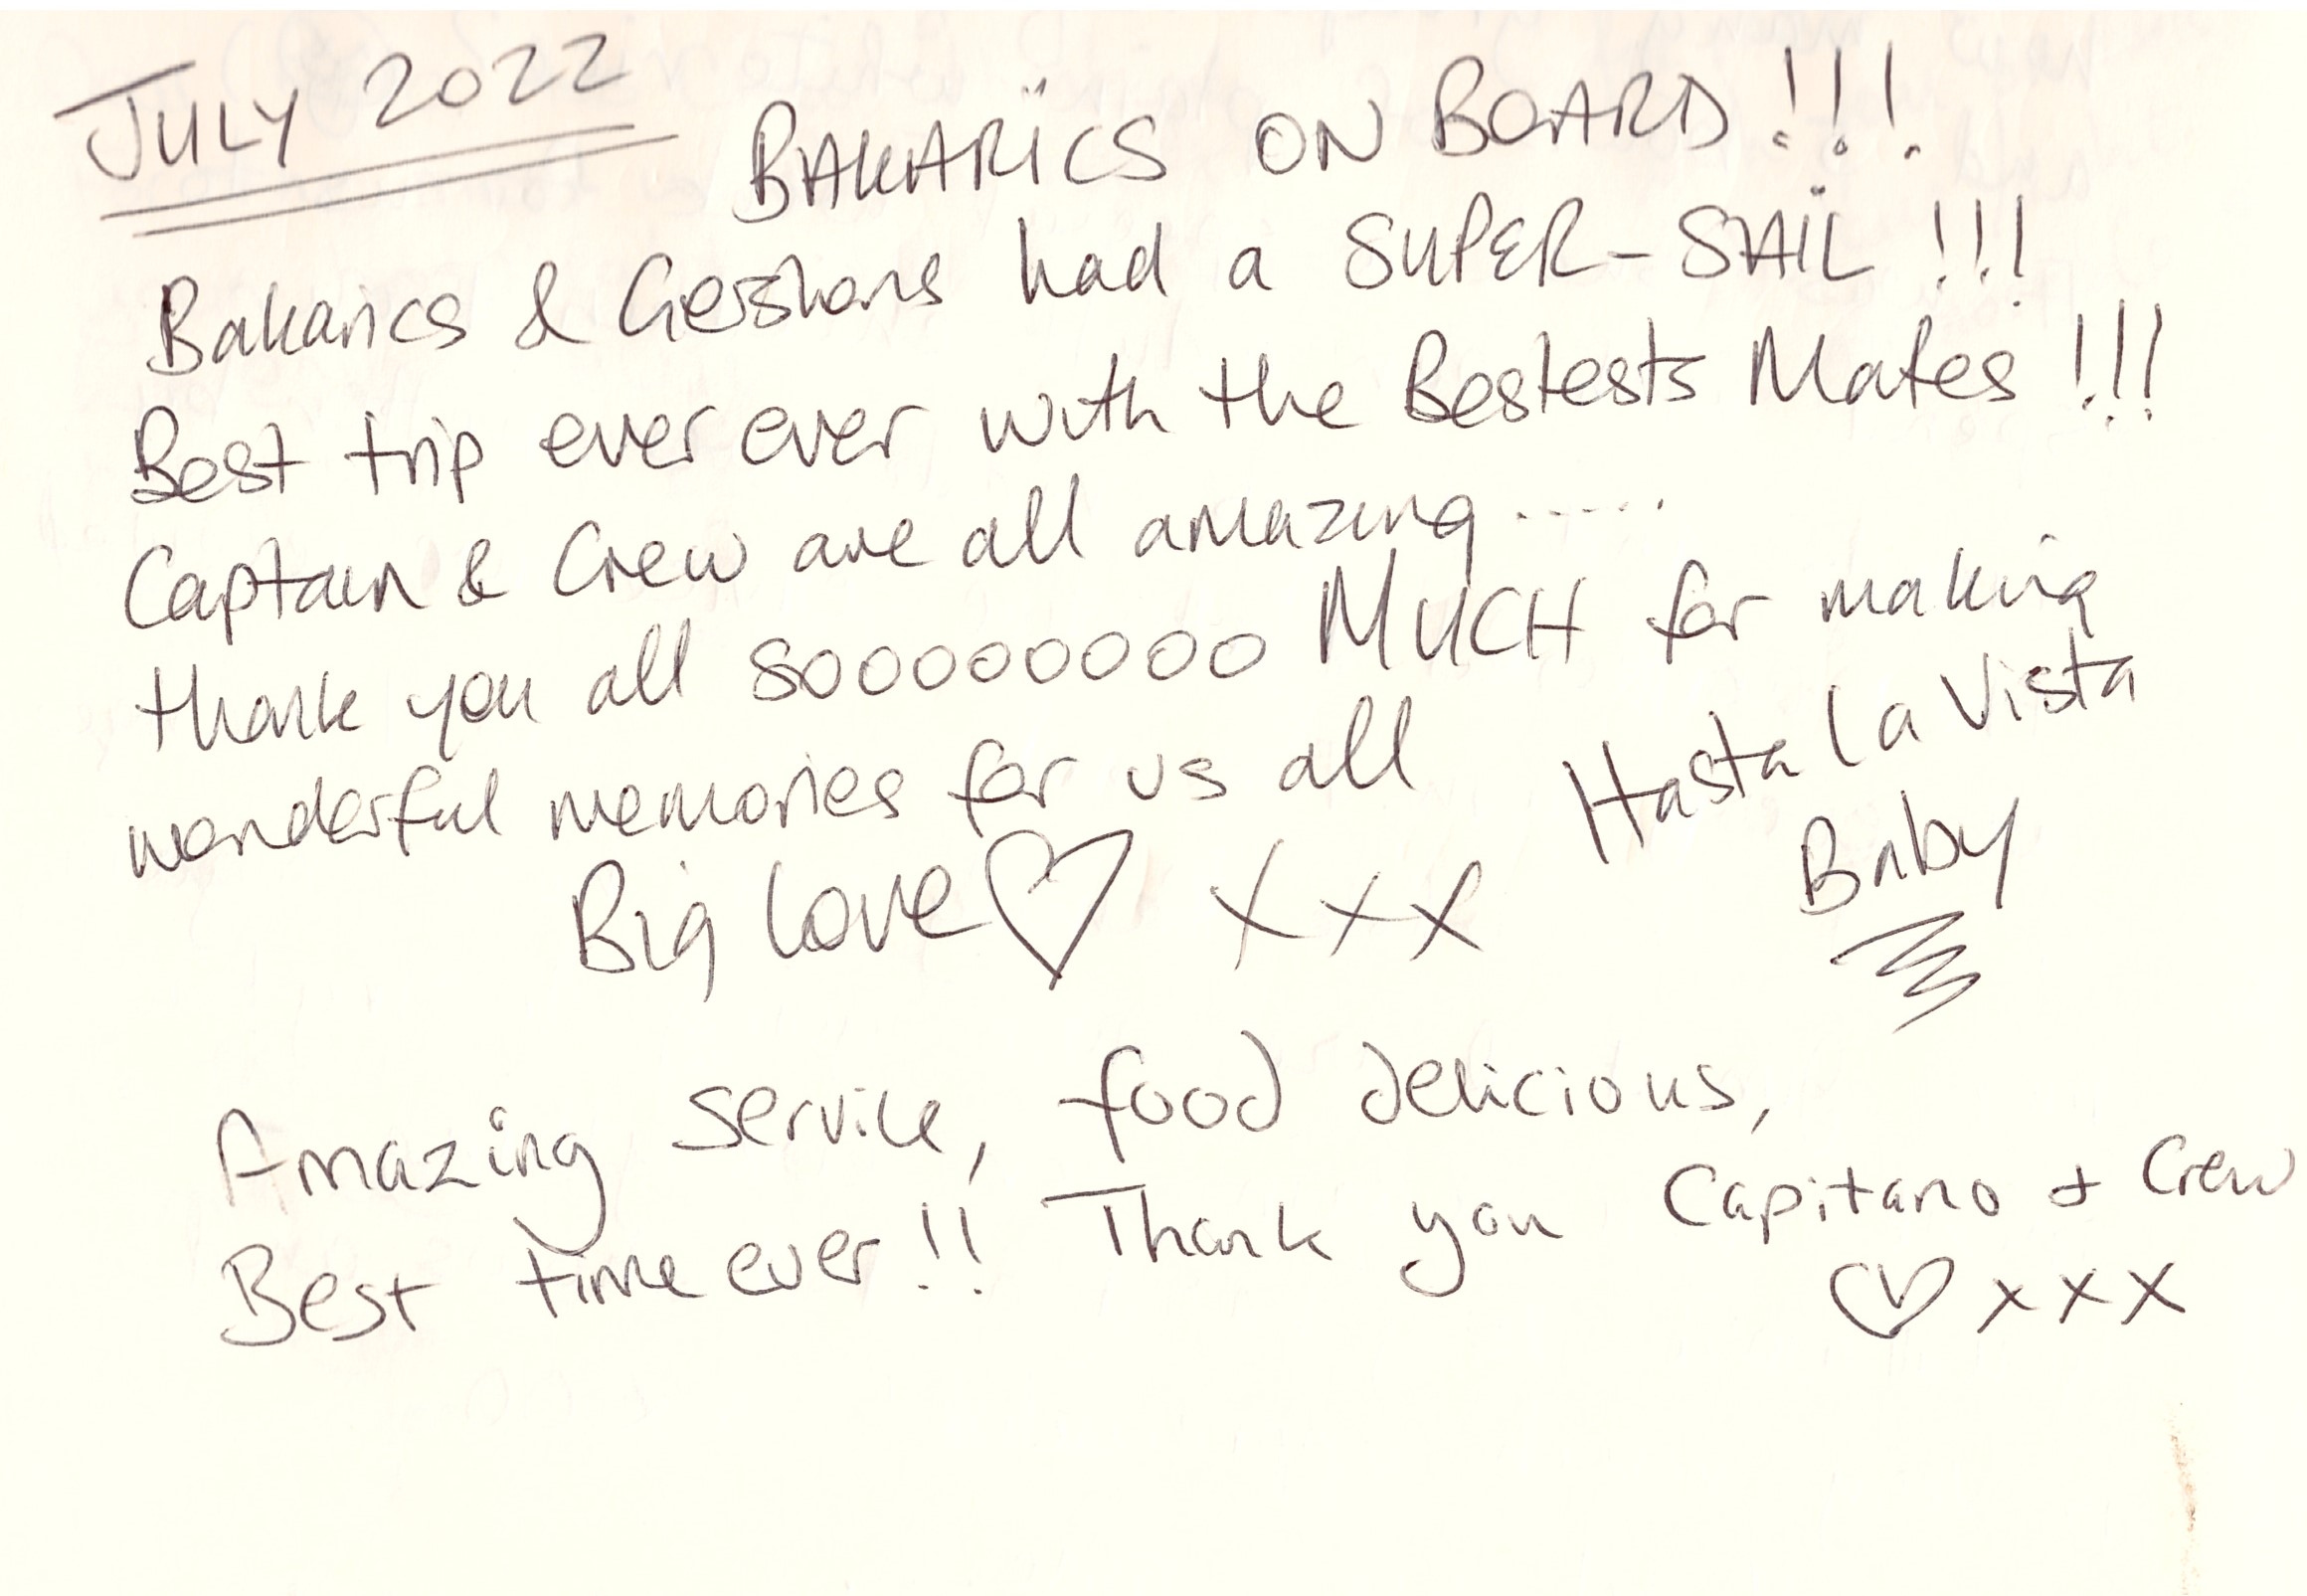 JULY 2022
BAKARiCS ON BOARD!!!
Bakarics & Gershons had a SUPER-SAiL!!!
Best trip ever ever with the Bestests Mates!!!
Captain & Crew are all amazing......
thank you all sooooooooo MUCH for making
wonderful memories for us all
Hasta la Vista
Baby
Big love ♡ xxx
Amazing service, food delicious,
Best time ever!! Thank you Capitano + Crew
♡ xxx